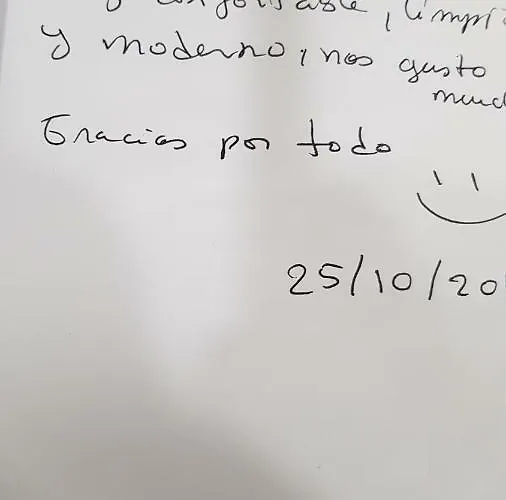 y confortable, limpi
y moderno, nos gusto
muc
Gracias por todo
25/10/20